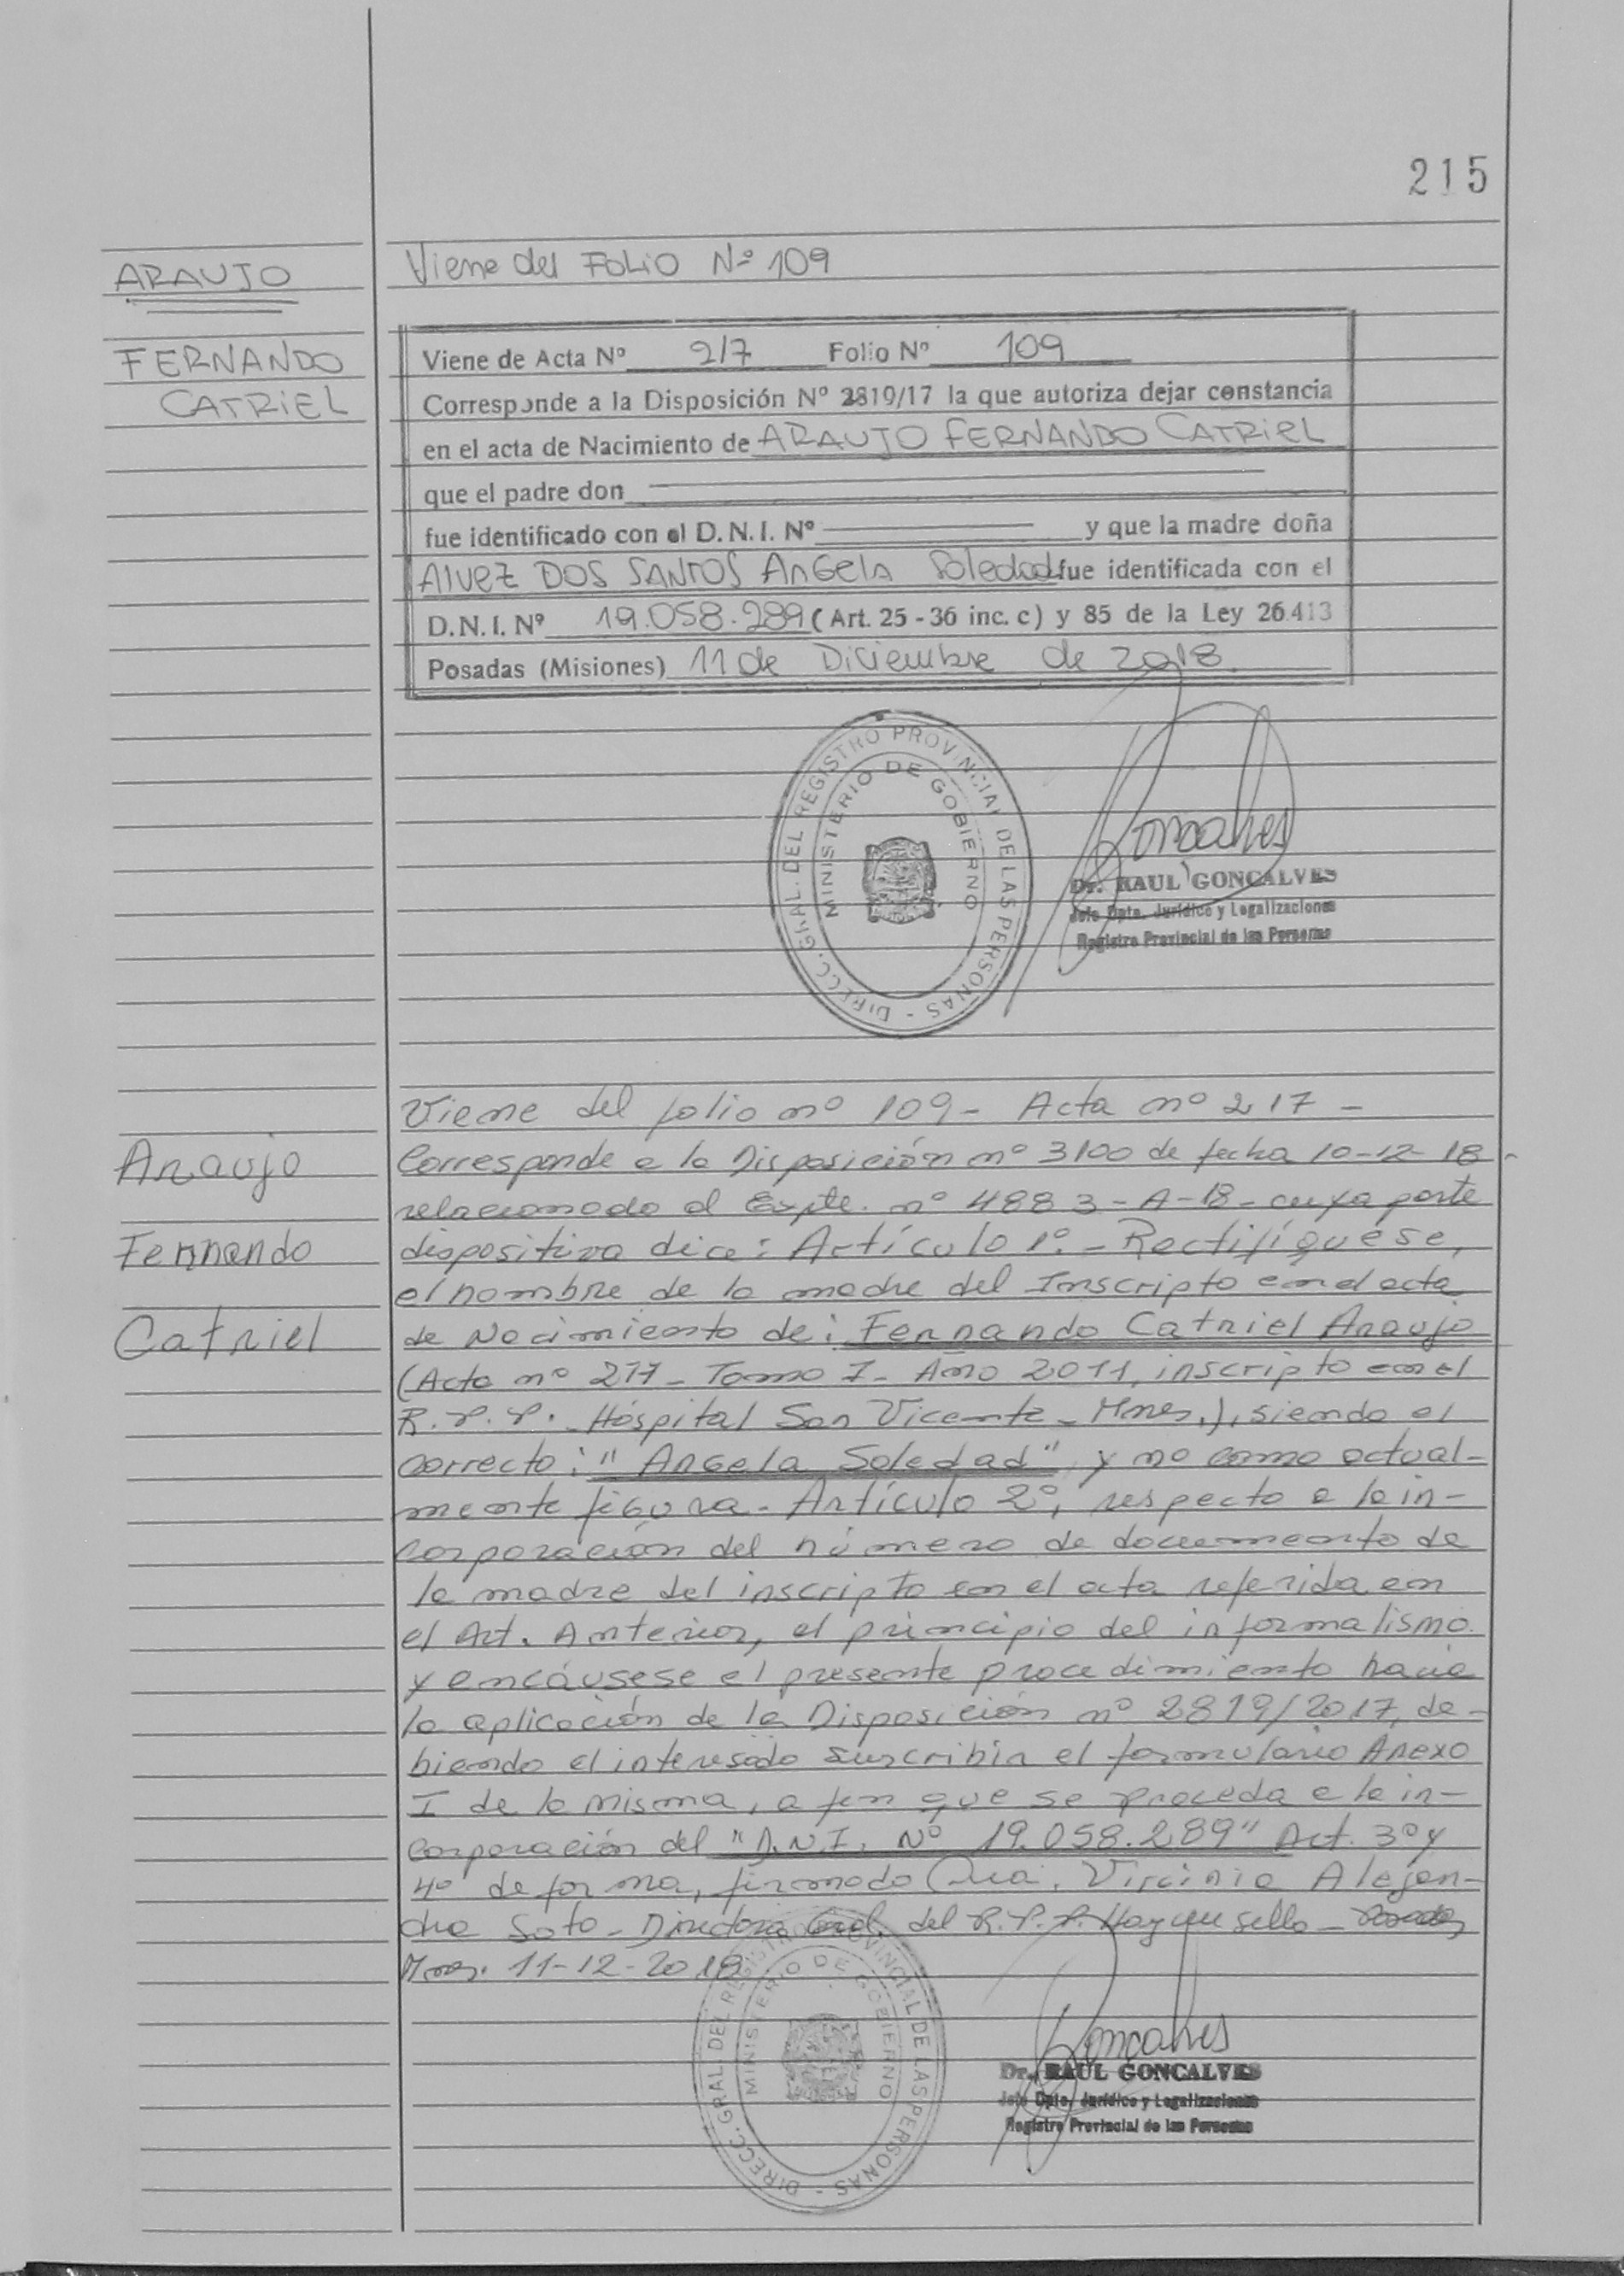 215
ARAUJO
FERNANDO
CATRIEL
Viene del FOLIO Nº 109
Viene de Acta Nº 217 Folio Nº 109
Corresponde a la Disposición Nº 2819/17 la que autoriza dejar constancia
en el acta de Nacimiento de ARAUJO FERNANDO CATRIEL
que el padre don
fue identificado con el D.N.I. Nº y que la madre doña
Alvez DOS SANTOS AnGelA Soledad fue identificada con el
D.N.I. Nº 19.058.289 (Art. 25 - 36 inc. c) y 85 de la Ley 26.413
Posadas (Misiones) 11 de Diciembre de 2018.
DIRECC. GRAL. DEL REGISTRO PROVINCIAL DE LAS PERSONAS -
MINISTERIO DE GOBIERNO
Goncalves
Dr. RAUL GONCALVES
Jefe Dpto. Jurídico y Legalizaciones
Registro Provincial de las Personas
Araujo
Fernando
Catriel
Viene del folio nº 109 - Acta nº 217 -
Corresponde a la Disposición nº 3100 de fecha 10-12-18 -
relacionado al Expte. nº 4883-A-18- cuya parte
dispositiva dice: Artículo 1º.- Rectifíquese,
el nombre de la madre del Inscripto en el acta
de Nacimiento de: Fernando Catriel Araujo
(Acta nº 217- Tomo I- Año 2011, inscripto en el
R.P.P. Hóspital San Vicente - Mnes.), siendo el
correcto: "Angela Soledad" y no como actual-
mente figura. Artículo 2º, respecto a la in-
corporación del número de documento de
la madre del inscripto en el acta referida en
el Art. Anterior, el principio del informalismo
y encáusese el presente procedimiento hacia
la aplicación de la Disposición nº 2819/2017, de-
biendo el interesado suscribir el formulario Anexo
I de la misma, a fin que se proceda a la in-
corporación del "D.N.I. Nº 19.058.289" Art. 3º y
4º de forma, firmado Virginia Alejan-
dra Soto - Directora Gral. del R.P.P. Hay un sello - Posadas,
Mnes. 11-12-2018
DIRECC. GRAL. DEL REGISTRO PROVINCIAL DE LAS PERSONAS -
MINISTERIO DE GOBIERNO
Goncalves
Dr. RAUL GONCALVES
Jefe Dpto. Jurídico y Legalizaciones
Registro Provincial de las Personas